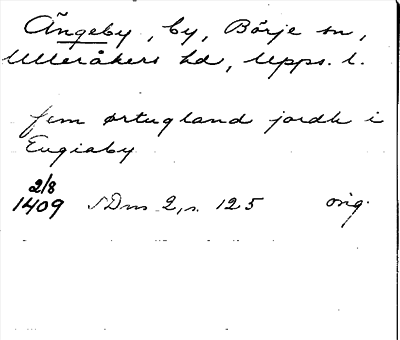 Ängeby, by, Börje sn,
Ulleråkers hd, Upps. l.
fem ørtugland jordh i
Engiaby
2/8
1409 SDns 2, s. 125 orig.